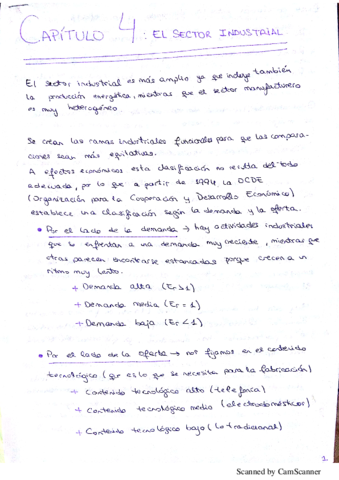 CAPÍTULO 4: EL SECTOR INDUSTRIAL
El sector industrial es más amplio ya que incluye también
la producción energética, mientras que el sector manufacturero
es muy heterogéneo.
Se crean las ramas industriales funcionales para que las compara-
ciones sean más equitativas.
A efectos económicos esta clasificación no resulta del todo
adecuada, por lo que a partir de 1994 la OCDE
(Organización para la Cooperación y Desarrollo Económico)
establece una clasificación según la demanda y la oferta.
• Por el lado de la demanda → hay actividades industriales
que se enfrentan a una demanda muy creciente, mientras que
otras parecen encontrarse estancadas porque crecen a un
ritmo muy lento.
+ Demanda alta (Er>1)
+ Demanda media (Er=1)
+ Demanda baja (Er<1)
• Por el lado de la oferta → nos fijamos en el contenido
tecnológico (que es lo que se necesita para la fabricación)
+ Contenido tecnológico alto (telefonía)
+ Contenido tecnológico medio (electrodomésticos)
+ Contenido tecnológico bajo (lo tradicional)
1
Scanned by CamScanner